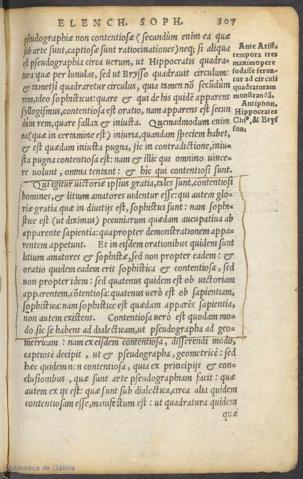 ELENCH. SOPH. 507
pseudographia non contentiosa (secundum enim ea quæ
sub arte sunt, captiosæ sunt ratiocinationes) neq; si aliqua
est pseudographia circa verum, ut Hippocratis quadra-
tura quæ per lunulas, sed ut Brysso quadrauit circulum:
& tametsi quadraretur circulus, quia tamen nō secūdum
rem, ideo sophisticus: quare & qui de his quidē apparens
syllogismus, contentiosa est oratio, nam apparens est secun
dùm rem, quare fallax & iniusta. Quemadmodum enim
ea (quæ in certamine est) iniuria, quandam speciem habet,
& est quædam iniusta pugna, sic in contradictione, iniu-
sta pugna contentiosa est: nam & illic qui omnino vince-
re volunt, omnia tentant: & hic qui contentiosi sunt.
Qui igitur uictoriæ ipsius gratia, tales sunt, contentiosi
homines, & litium amatores uidentur esse: qui autem glo-
riæ gratia quæ in diuitijs est, sophistici sunt: nam sophi-
stice est (ut diximus) pecuniarum quædam aucupatiua ab
apparente sapientia: quapropter demonstrationem appa-
rentem appetunt. Et in eisdem orationibus quidem sunt
litium amatores & sophistæ, sed non propter eadem: &
oratio quidem eadem erit sophistica & contentiosa, sed
non propter idem: sed quatenus quidem est ob uictoriam
apparentem, cōtentiosa: quatenus uerò est ob sapientiam,
sophistica: nam sophistice est quædam apparēs sapientia,
non autem existens. Contentiosa uerò est quodam mo-
do sic se habens ad dialecticam, ut pseudographa ad geo-
metricam: nam ex eisdem contentiosa, disserendi modo,
captiosè decipit, ut & pseudographa, geometricè: sed
hæc quidem non contentiosa, quia ex principijs & con-
clusionibus, quæ sunt arte pseudographiam facit: quæ
autem ex ijs est: quæ sunt sub dialectica, circa alia quidem
contentiosam esse, manifestum est: ut quadratura quidem
quæ
Ante Arist.
tempora tres
maximopere
sudasse ferun-
tur ad circuli
quadraturam
monstrandā,
Antiphon,
Hippocrates
Chi⁹, & Brys
son.
Biblioteca de Galicia